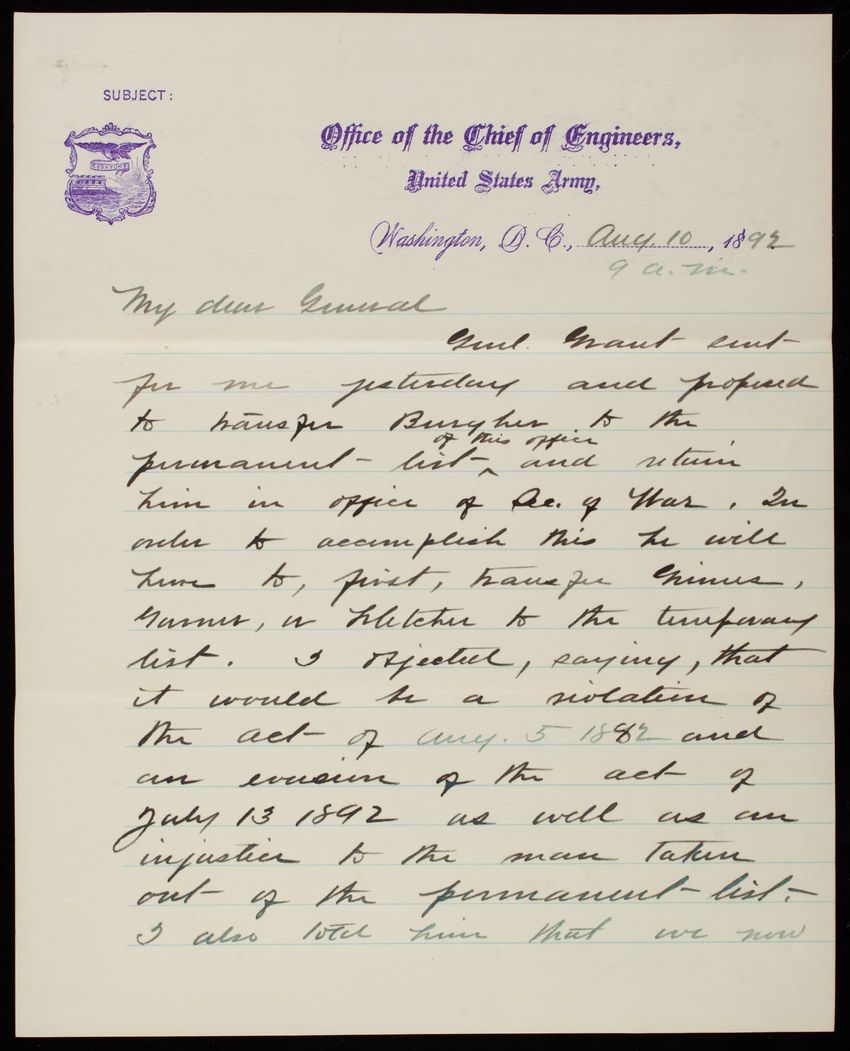 SUBJECT:
ESSAYONS
Office of the Chief of Engineers,
United States Army,
Washington, D. C., Aug. 10, 1892
9 a. m.
My dear General
Genl. Grant sent
for me yesterday and proposed
to transfer Burgher to the
of this office
permanent list ^ and retain
him in office of Sec. of War. In
order to accomplish this he will
have to, first, transfer Grimes,
or Fletcher to the temporary
list. I objected, saying, that
it would be a violation of
the act of Aug. 5 1882 and
an evasion of the act of
July 13 1892 as well as an
injustice to the man taken
out of the permanent list.
I also told him that we now